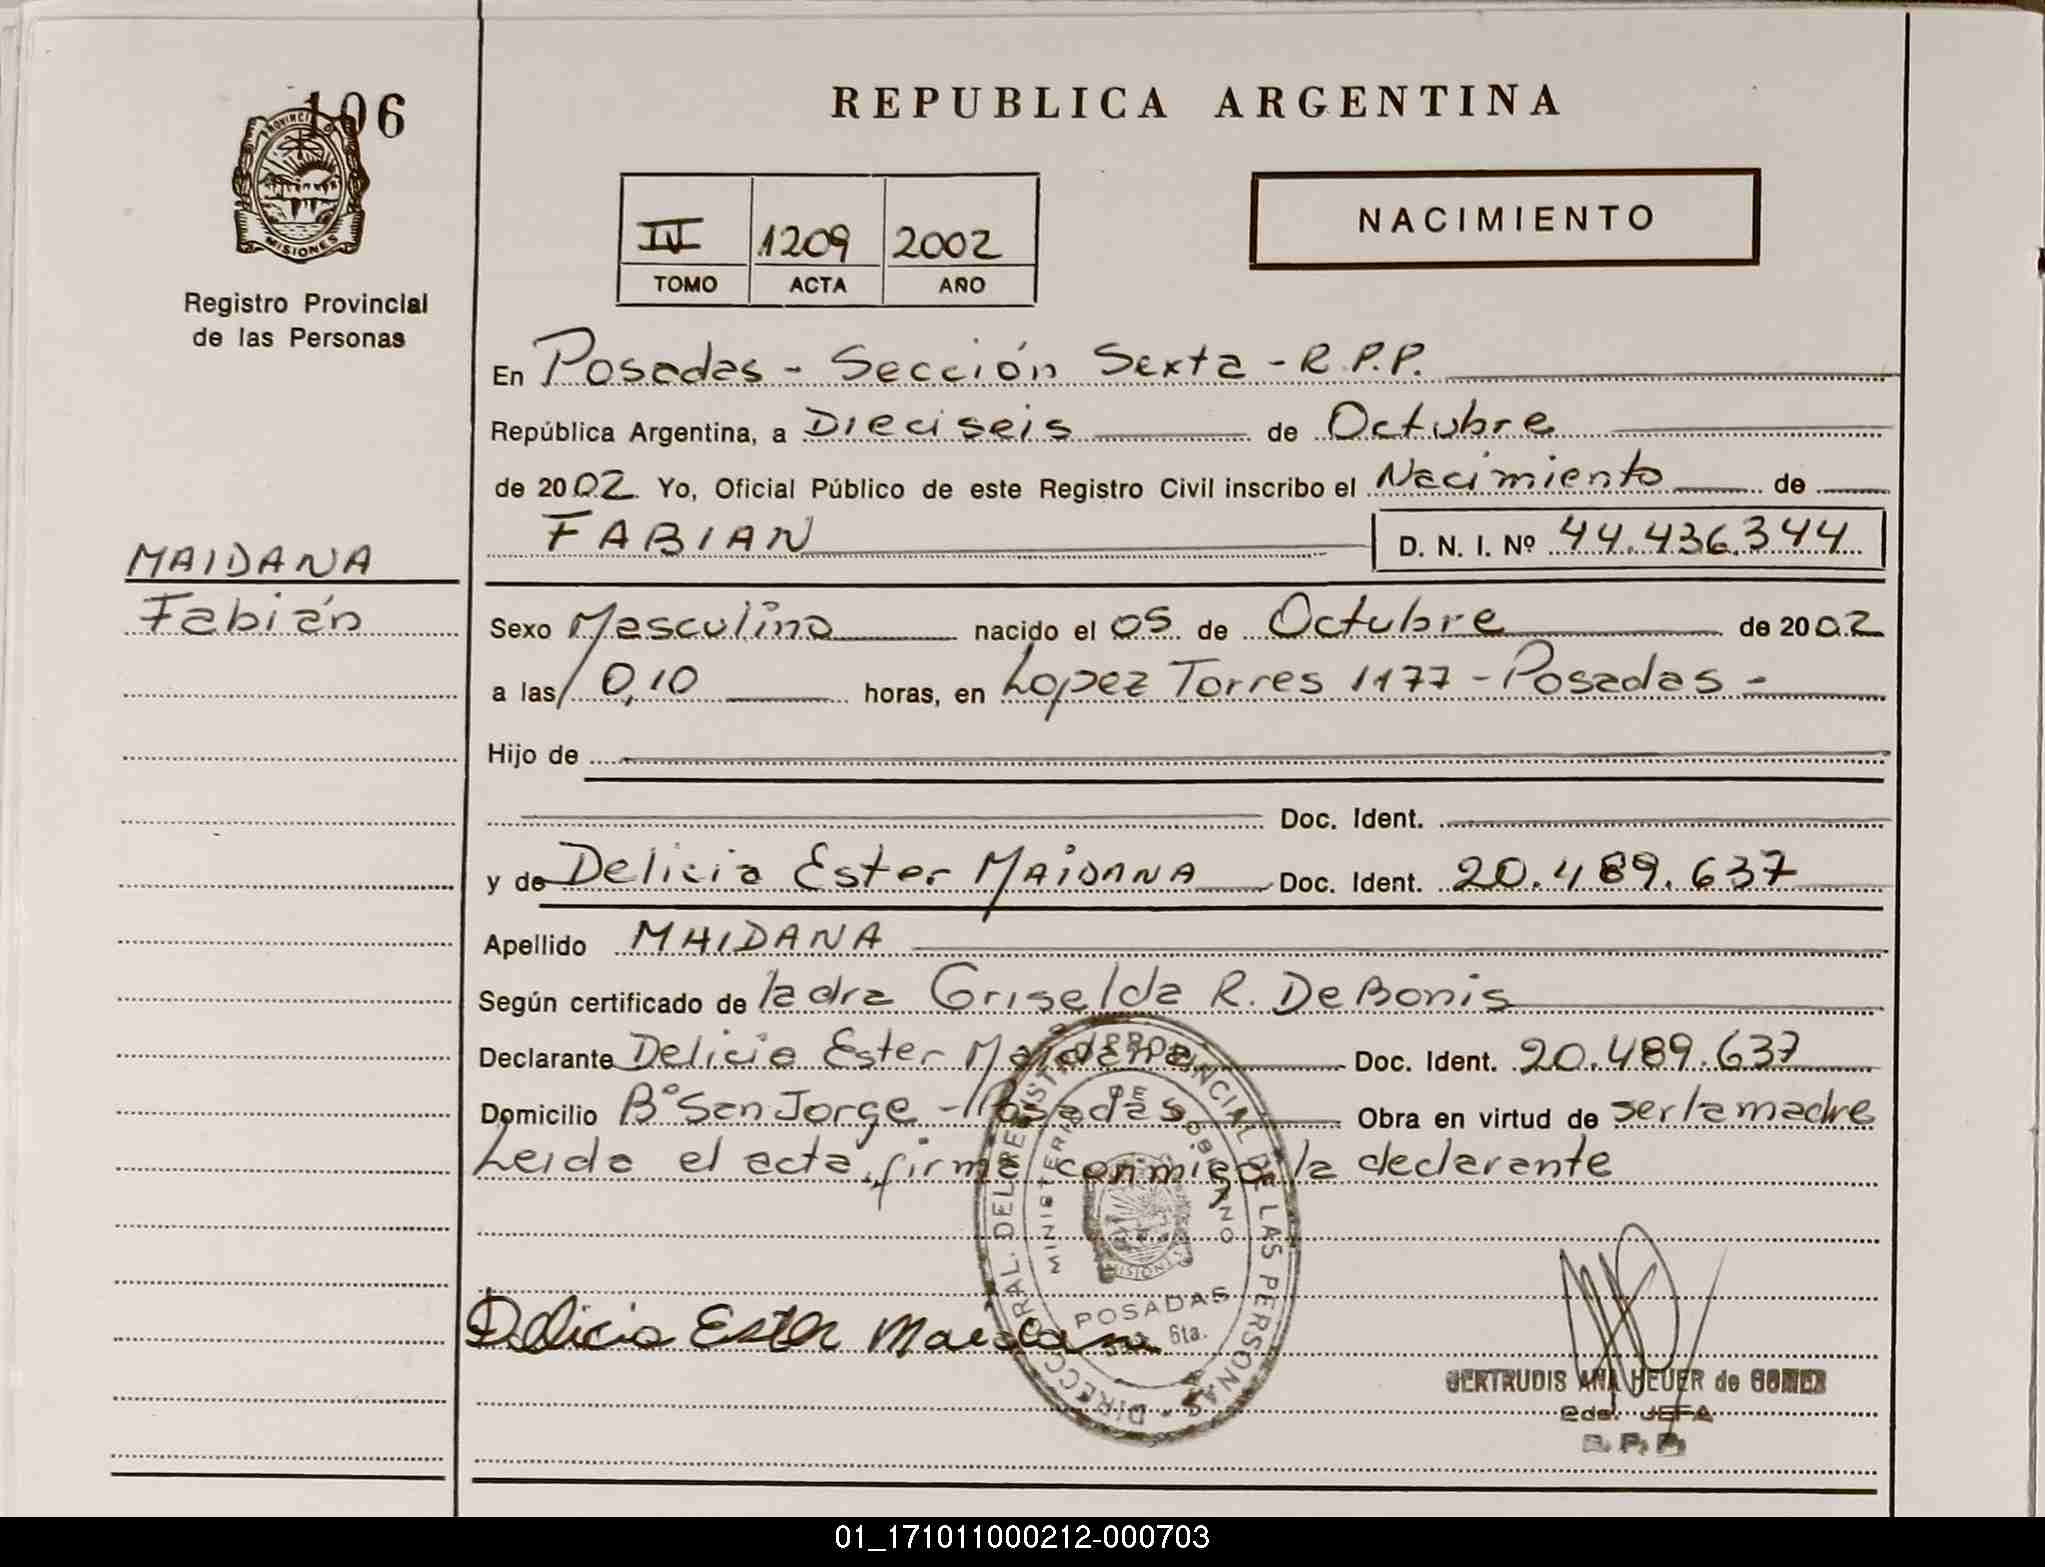 106
PROVINCIA DE
MISIONES
Registro Provincial
de las Personas
MAIDANA
Fabián
REPUBLICA ARGENTINA
IV 1209 2002
TOMO ACTA AÑO
NACIMIENTO
En Posadas - Sección Sexta - R.P.P.
República Argentina, a Dieciseis de Octubre
de 2002. Yo, Oficial Público de este Registro Civil inscribo el Nacimiento de
FABIAN D. N. I. Nº 44.436.344
Sexo Masculino nacido el 05 de Octubre de 2002
a las 0,10 horas, en Lopez Torres 1177 - Posadas -
Hijo de
Doc. Ident.
y de Delicia Ester MAIDANA Doc. Ident. 20.489.637
Apellido MAIDANA
Según certificado de la dra Griselda R. De Bonis
Declarante Delicia Ester Maidana Doc. Ident. 20.489.637
Domicilio Bº San Jorge - Posadas Obra en virtud de ser la madre
Leida el acta, firma conmigo la declarante
DIRECC GRAL. DEL REGISTRO PROVINCIAL DE LAS PERSONAS
MINISTERIO DE GOBIERNO
MISIONES
POSADAS
6ta.
Delicia Ester Maidana
GERTRUDIS ANA HEUER de GOMEZ
2da. JEFA
R. P. P.
01_171011000212-000703